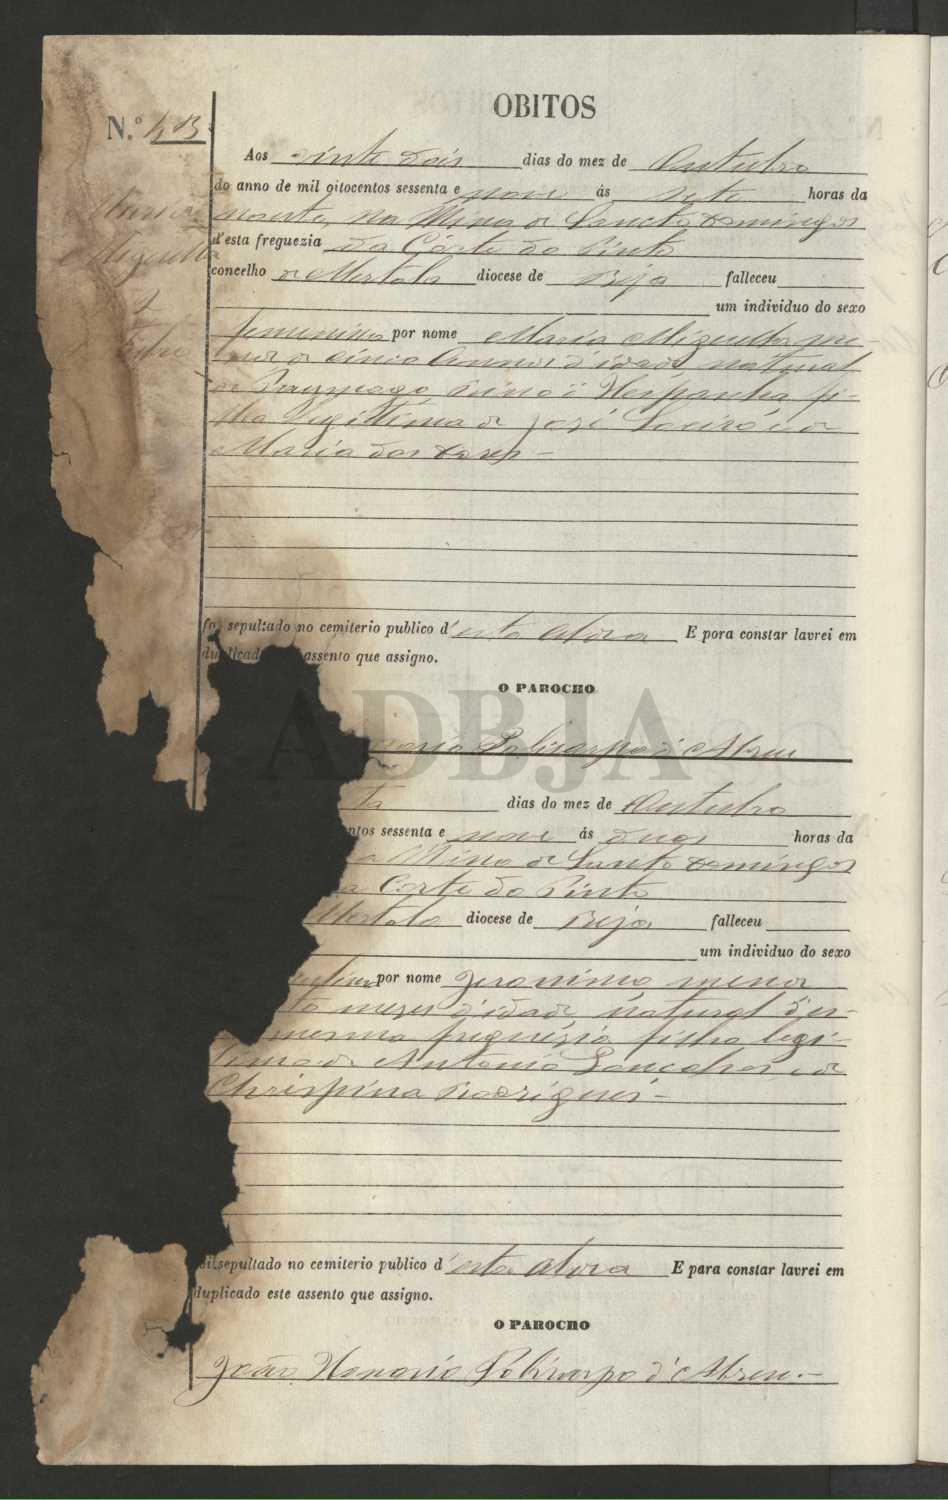 OBITOS
N.º 43
Maria
Miguella
Aos vinte dois dias do mez de Outubro
do anno de mil oitocentos sessenta e nove ás sete horas da
noute, na Mina de Sancto Domingos
d'esta freguezia da Côrte do Pinto
concelho de Mertola diocese de Beja falleceu
um individuo do sexo
femenino por nome Maria Miguella me-
nor de cinco annos d'idade natural
de Reino d'Hespanha fi-
lha legitima de José e de
Maria das Dores -
foi sepultado no cemiterio publico d'esta Aldeia E para constar lavrei em
duplicado assento que assigno.
O PAROCHO
ADBJA
Policarpo d'Abreu
ta dias do mez de Outubro
ntos sessenta e nove ás duas horas da
a Mina de Santo Domingos
a Corte do Pinto
Mertola diocese de Beja falleceu
um individuo do sexo
culino por nome Jeronimo menor
to mezes d'idade natural d'es-
mesma freguezia filho legi-
timo de Antonio Goncalves, e de
Chrispina Rodrigues -
sepultado no cemiterio publico d'esta Aldeia E para constar lavrei em
duplicado este assento que assigno.
O PAROCHO
João Honorio Policarpo d'Abreu. -